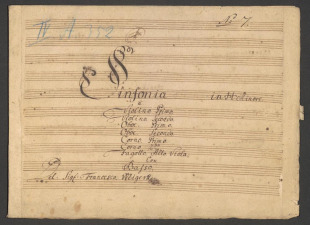 No 7.
Sinfonia in H minore
a
Violino Primo
Violino Secondo
Oboe Primo.
Oboe Secondo
Corno Primo
Corno 2do
Fagotto Alto Viola,
Con
Basso.
Del Sigr Francesco